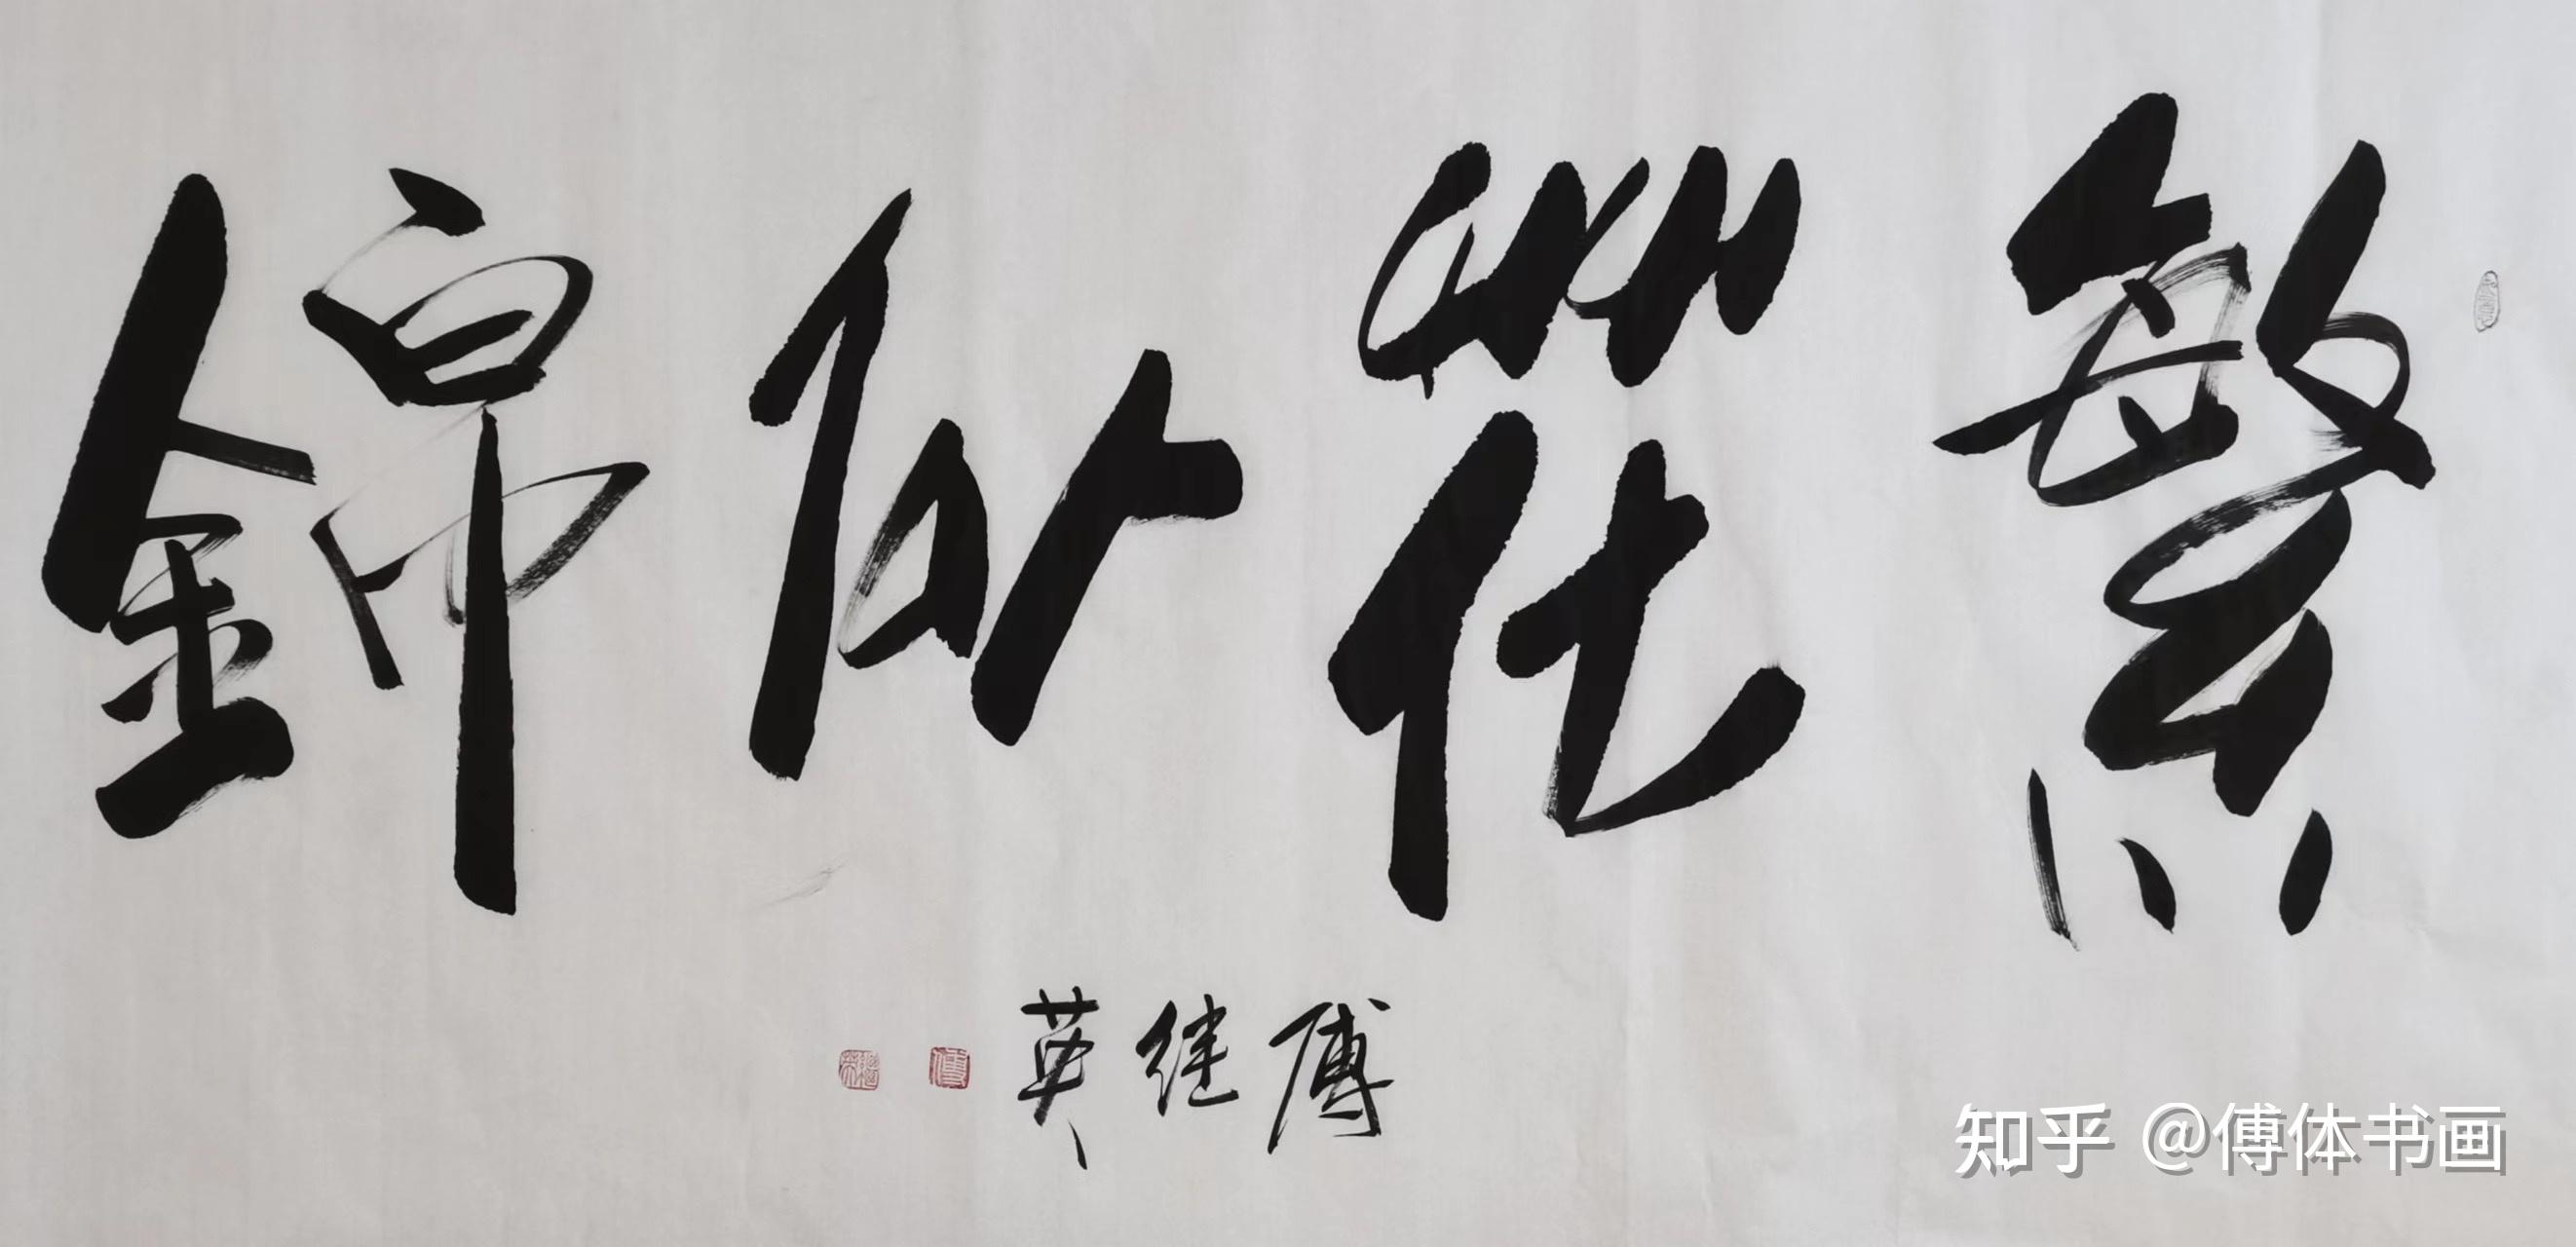 繁花似錦
傅继英
知乎 @傅体书画